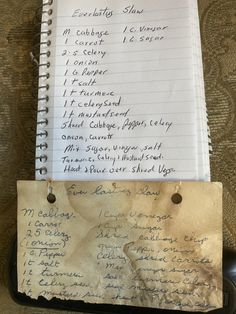 Everlasting Slaw
M Cabbage 1 C. Vinegar
1 Carrot 1 C Sugar
2 S. Celery
1 Onion
1 G. Pepper
1 t salt
1 t turmeric
1 t celery seed
1 t mustard seed
Shred Cabbage, Pepper, Celery
Onion, Carrots
Mix Sugar, Vinegar, salt
Turmeric, Celery & Mustard seed.
Heat & Pour over shred Vegs.
Everlasting Slaw
M Cabbage 1 Cup Vinegar
1 Carrot 1 Cup Sugar
2 S Celery cabbage
1 onion onion
1 G Pepper Celery, shred carrots
1 t salt Mix sugar
1 t turmeric
1 t Celery seed
1 t mustard seed